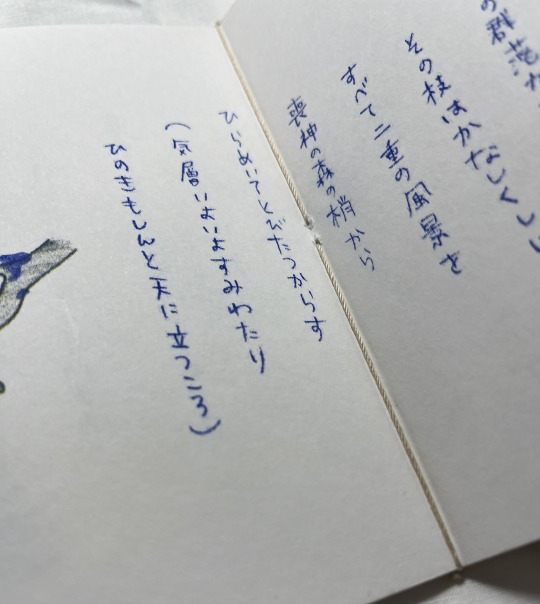 の群落が
その枝はかなしくし
すべて二重の風景を
喪神の森の梢から
ひらめいてとびたつからす
(気層いよいよすみわたり
ひのきもしんと天に立つころ)